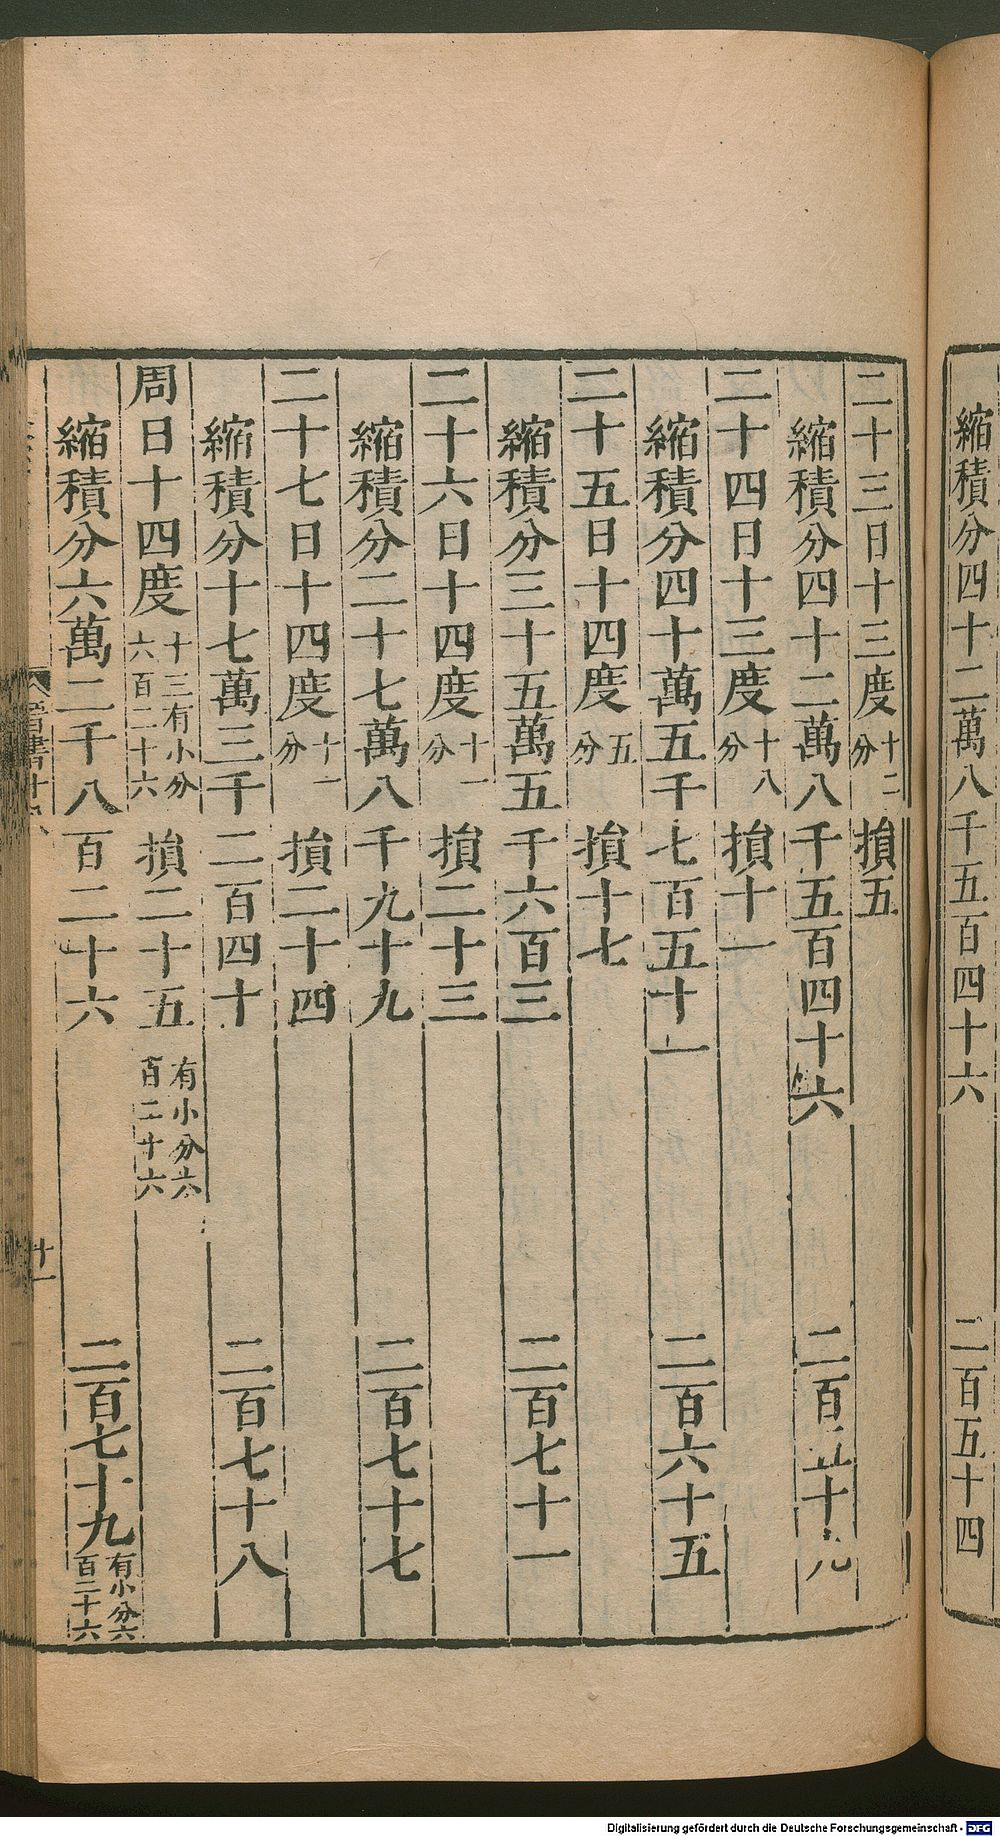 縮積分四十二萬八千五百四十六 二百五十四
二十三日十三度十二分 損五
縮積分四十二萬八千五百四十六 二百五十九
二十四日十三度十八分 損十一
縮積分四十萬五千七百五十一 二百六十五
二十五日十四度五分 損十七
縮積分三十五萬五千六百三 二百七十一
二十六日十四度十一分 損二十三
縮積分二十七萬八千九十九 二百七十七
二十七日十四度十一分 損二十四
縮積分十七萬三千二百四十 二百七十八
周日十四度十三有小分六百二十六 損二十五有小分六百二十六
縮積分六萬二千八百二十六 二百七十九有小分六百二十六
晉書十
廿一
Digitalisierung gefördert durch die Deutsche Forschungsgemeinschaft - DFG